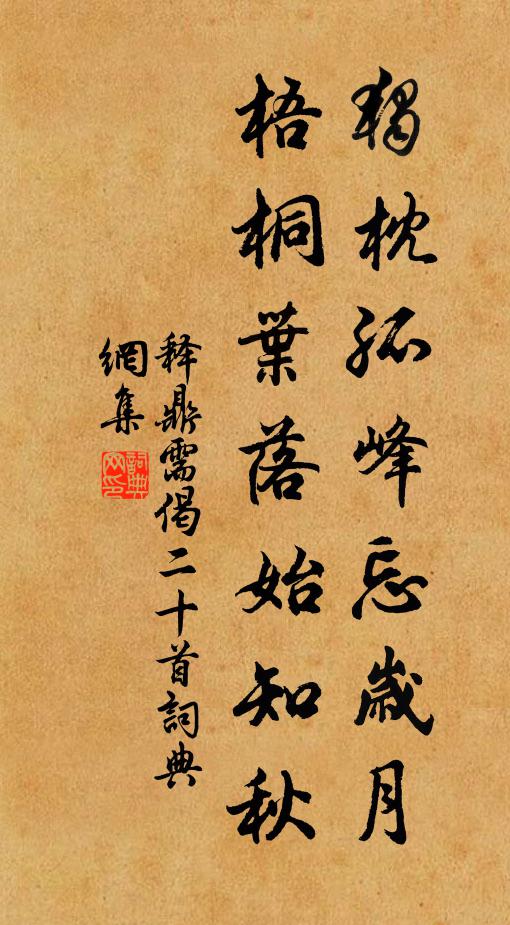 獨枕孤峰忘歲月
梧桐葉落始知秋
釋鼎需偈二十首詞典
網集
詞典網印